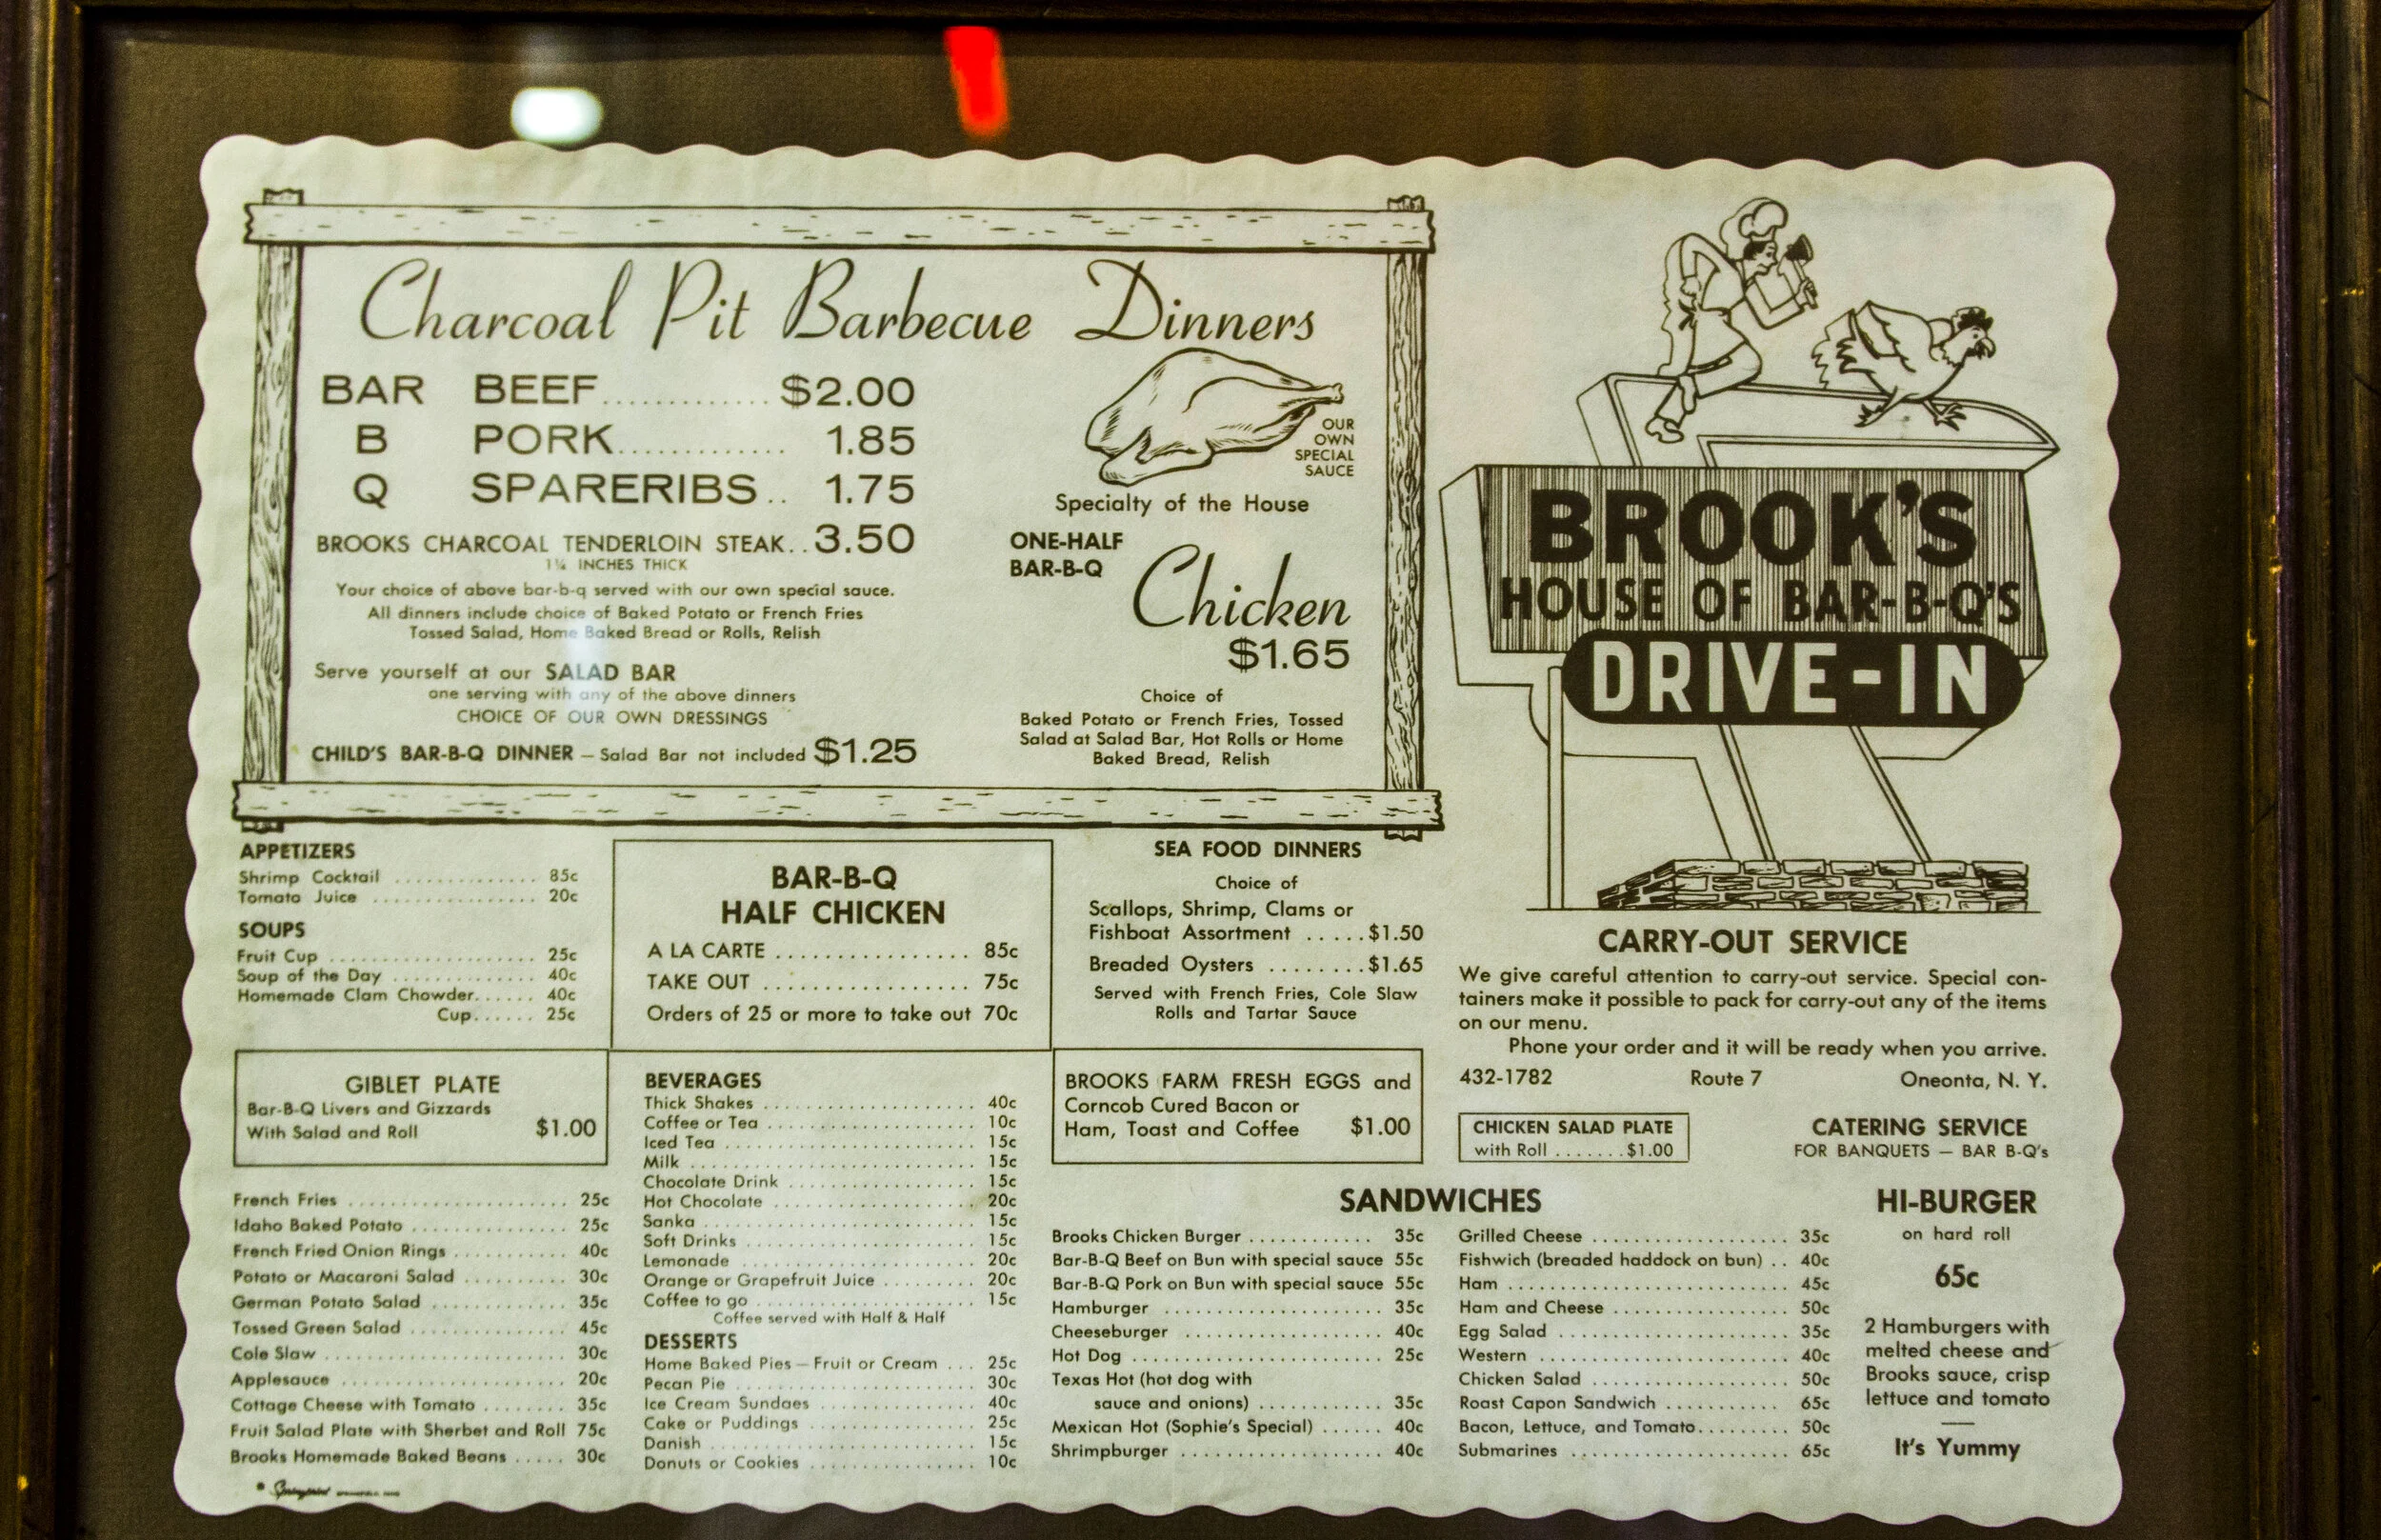 Charcoal Pit Barbecue Dinners
BAR BEEF............. $2.00
B PORK............. 1.85
Q SPARERIBS.. 1.75
BROOKS CHARCOAL TENDERLOIN STEAK.. 3.50
1¼ INCHES THICK
Your choice of above bar-b-q served with our own special sauce.
All dinners include choice of Baked Potato or French Fries
Tossed Salad, Home Baked Bread or Rolls, Relish
Serve yourself at our SALAD BAR
one serving with any of the above dinners
CHOICE OF OUR OWN DRESSINGS
CHILD'S BAR-B-Q DINNER — Salad Bar not included $1.25
OUR
OWN
SPECIAL
SAUCE
Specialty of the House
ONE-HALF
BAR-B-Q
Chicken
$1.65
Choice of
Baked Potato or French Fries, Tossed
Salad at Salad Bar, Hot Rolls or Home
Baked Bread, Relish
BROOK'S
HOUSE OF BAR-B-Q'S
DRIVE-IN
APPETIZERS
Shrimp Cocktail .............. 85c
Tomato Juice ................ 20c
SOUPS
Fruit Cup .................... 25c
Soup of the Day .............. 40c
Homemade Clam Chowder...... 40c
Cup...... 25c
BAR-B-Q
HALF CHICKEN
A LA CARTE ................ 85c
TAKE OUT ................. 75c
Orders of 25 or more to take out 70c
SEA FOOD DINNERS
Choice of
Scallops, Shrimp, Clams or
Fishboat Assortment .....$1.50
Breaded Oysters ........$1.65
Served with French Fries, Cole Slaw
Rolls and Tartar Sauce
CARRY-OUT SERVICE
We give careful attention to carry-out service. Special con-
tainers make it possible to pack for carry-out any of the items
on our menu.
Phone your order and it will be ready when you arrive.
432-1782 Route 7 Oneonta, N. Y.
GIBLET PLATE
Bar-B-Q Livers and Gizzards
With Salad and Roll $1.00
French Fries ..................... 25c
Idaho Baked Potato ............... 25c
French Fried Onion Rings ........... 40c
Potato or Macaroni Salad .......... 30c
German Potato Salad ............. 35c
Tossed Green Salad ............... 45c
Cole Slaw ....................... 30c
Applesauce ...................... 20c
Cottage Cheese with Tomato ........ 35c
Fruit Salad Plate with Sherbet and Roll 75c
Brooks Homemade Baked Beans ..... 30c
BEVERAGES
Thick Shakes .................... 40c
Coffee or Tea .................... 10c
Iced Tea ........................ 15c
Milk ........................... 15c
Chocolate Drink .................. 15c
Hot Chocolate ................... 20c
Sanka .......................... 15c
Soft Drinks ...................... 15c
Lemonade ....................... 20c
Orange or Grapefruit Juice ......... 20c
Coffee to go ..................... 15c
Coffee served with Half & Half
DESSERTS
Home Baked Pies — Fruit or Cream ... 25c
Pecan Pie ....................... 30c
Ice Cream Sundaes ................ 40c
Cake or Puddings ................ 25c
Danish ......................... 15c
Donuts or Cookies ................ 10c
BROOKS FARM FRESH EGGS and
Corncob Cured Bacon or
Ham, Toast and Coffee $1.00
CHICKEN SALAD PLATE
with Roll .......$1.00
CATERING SERVICE
FOR BANQUETS — BAR B-Q's
SANDWICHES
Brooks Chicken Burger ............ 35c
Bar-B-Q Beef on Bun with special sauce 55c
Bar-B-Q Pork on Bun with special sauce 55c
Hamburger ..................... 35c
Cheeseburger ................... 40c
Hot Dog ........................ 25c
Texas Hot (hot dog with
sauce and onions) ............ 35c
Mexican Hot (Sophie's Special) ...... 40c
Shrimpburger .................... 40c
Grilled Cheese ................... 35c
Fishwich (breaded haddock on bun) .. 40c
Ham ........................... 45c
Ham and Cheese ................. 50c
Egg Salad ....................... 35c
Western ........................ 40c
Chicken Salad ................... 50c
Roast Capon Sandwich ........... 65c
Bacon, Lettuce, and Tomato......... 50c
Submarines ..................... 65c
HI-BURGER
on hard roll
65c
2 Hamburgers with
melted cheese and
Brooks sauce, crisp
lettuce and tomato
It's Yummy